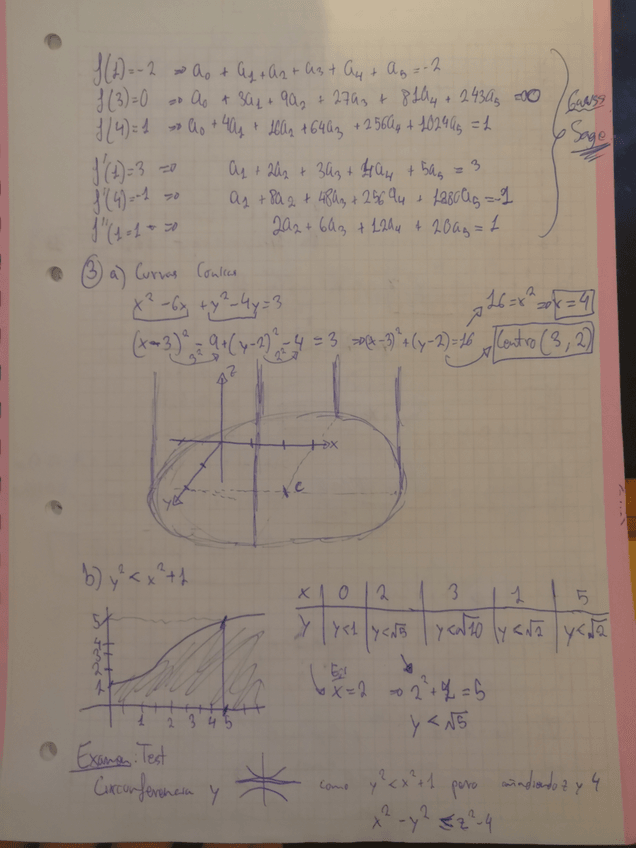 f(1)=-2 ⇒ a₀ + a₁ + a₂ + a₃ + a₄ + a₅ = -2
f(3)=0 ⇒ a₀ + 3a₁ + 9a₂ + 27a₃ + 81a₄ + 243a₅ = 0
f(4)=1 ⇒ a₀ + 4a₁ + 16a₂ + 64a₃ + 256a₄ + 1024a₅ = 1
f'(1)=3 ⇒ a₁ + 2a₂ + 3a₃ + 4a₄ + 5a₅ = 3
f'(4)=-1 ⇒ a₁ + 8a₂ + 48a₃ + 256a₄ + 1280a₅ = -1
f''(1=1 ⇒ 2a₂ + 6a₃ + 12a₄ + 20a₅ = 1
Gauss
Sage
③ a) Curvas
x² - 6x + y² - 4y = 3
16 = x² ⇒ x = 4
(x-3)² - 9 + (y-2)² - 4 = 3 ⇒ (x-3)² + (y-2) = 16
3² 2²
Centro (3, 2)
z
x
y
c
b) y² < x² + 1
x 0 2 3 1 5
y y<1 y<√5 y<√10 y<√2 y<√2
5
4
3
2
1
1 2 3 4 5
Ej:
x = 2 ⇒ 2² + 1 = 5
y < √5
Examen Test
Circunferencia y como y² < x² + 1 pero añadiendo z y 4
x² - y² ≤ z² - 4